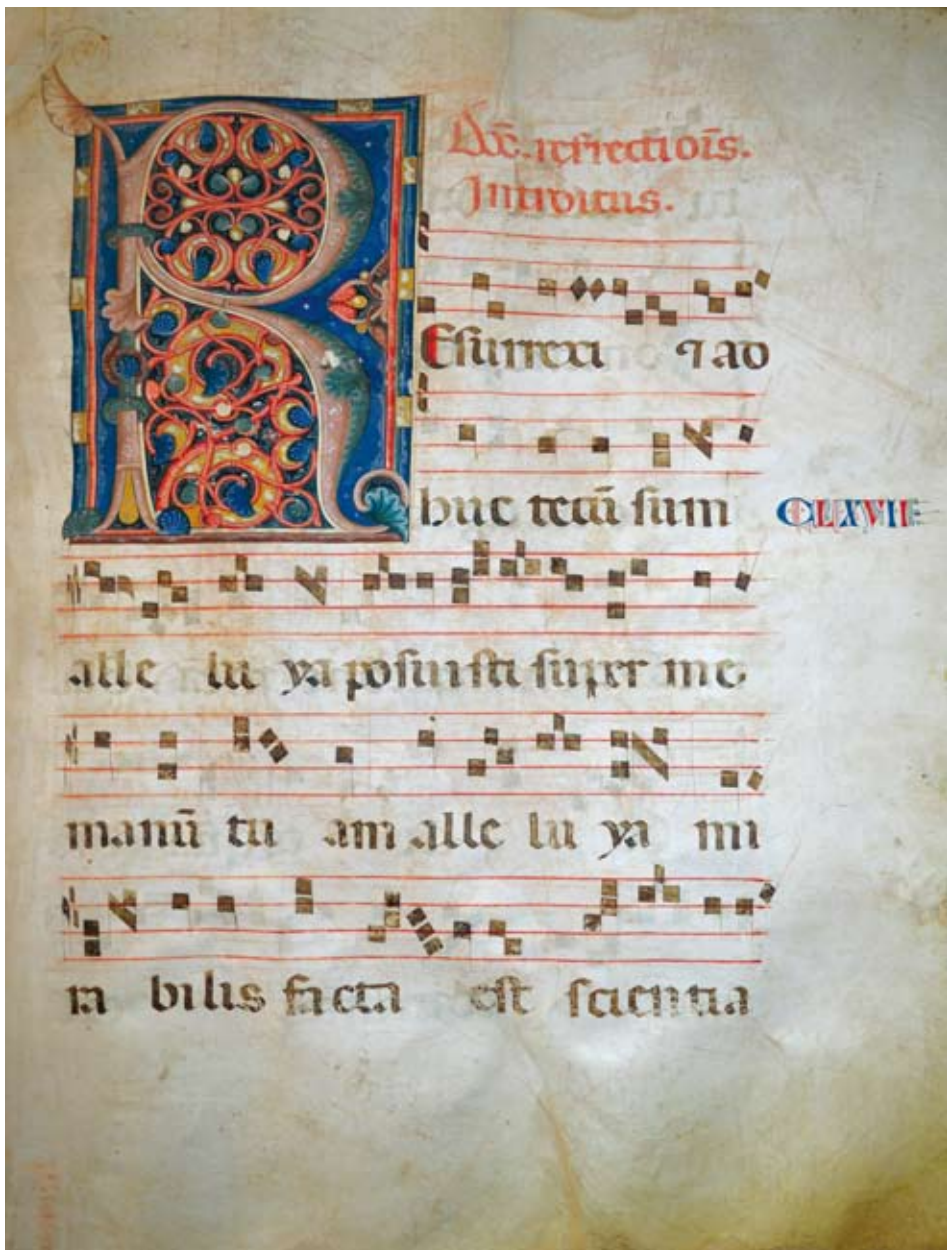 resurrectiõis.
Introitus.
REsurrexi ⁊ ad
huc tecũ sum
CLXVII
alle lu ya posuisti super me
manũ tu am alle lu ya mi
ra bilis facta est scientia